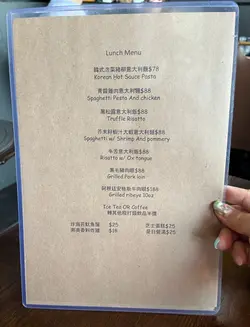 Lunch Menu
韓式冷菜豬柳意大利麵$78
Korean Hot Sauce Pasta
青醬雞肉意大利麵$88
Spaghetti Pesto And chicken
黑松露意大利飯$88
Truffle Risotto
芥末籽蝦汁大蝦意大利麵$88
Spaghetti w/ Shrimp And pommery
牛舌意大利飯$88
Risotto w/ Ox tongue
黑毛豬肉眼$88
Grilled Pork loin
阿根廷安格斯牛肉眼$188
Grilled ribeye 10oz
Ice Tea OR Coffee
轉其他餐飲品半價
$25
芝士蛋糕$25
$18
是日餐湯$25